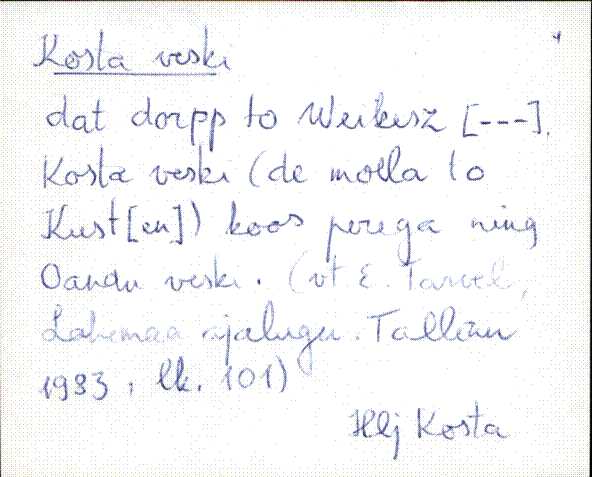 Kosta veski
dat dorpp to Weikesz [---].
Kosta veski (de moella to
Kust[en]) koos perega ning
Oandu veski. (vt E. Tarvel,
Lahemaa ajalugu. Tallinn
1983, lk. 101)
Hlj Kosta